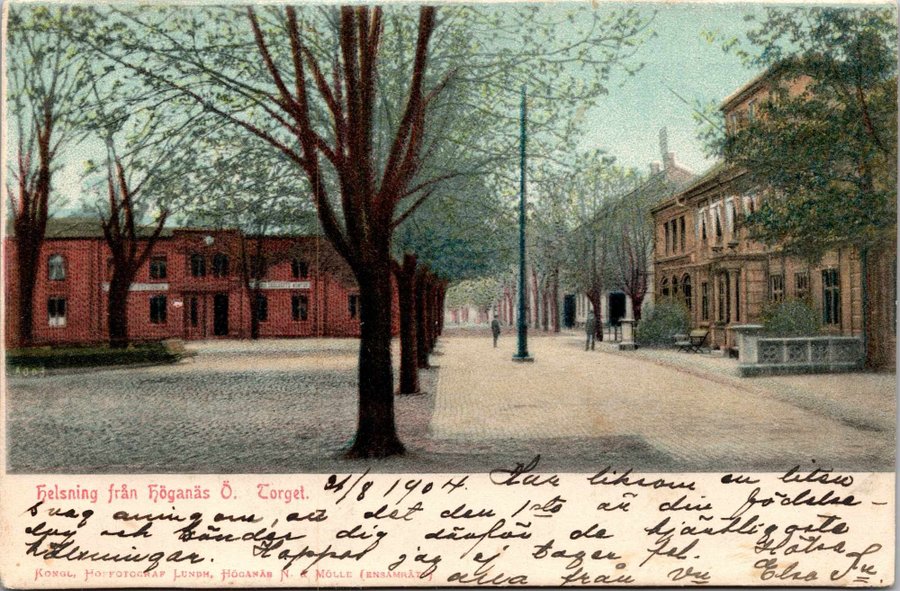 Helsning från Höganäs Ö. Torget.
21/8 1904. Har liksom en liten
svag aning om, att det den 1sta är din födelse-
dag och sänder dig därför de hjärtligaste
hälsningar. Hoppas jag ej tager fel. Hälsa
KONGL. HOFFOTOGRAF LUNDH, HÖGANÄS N. & MÖLLE (ENSAMRÄTT)
alla från